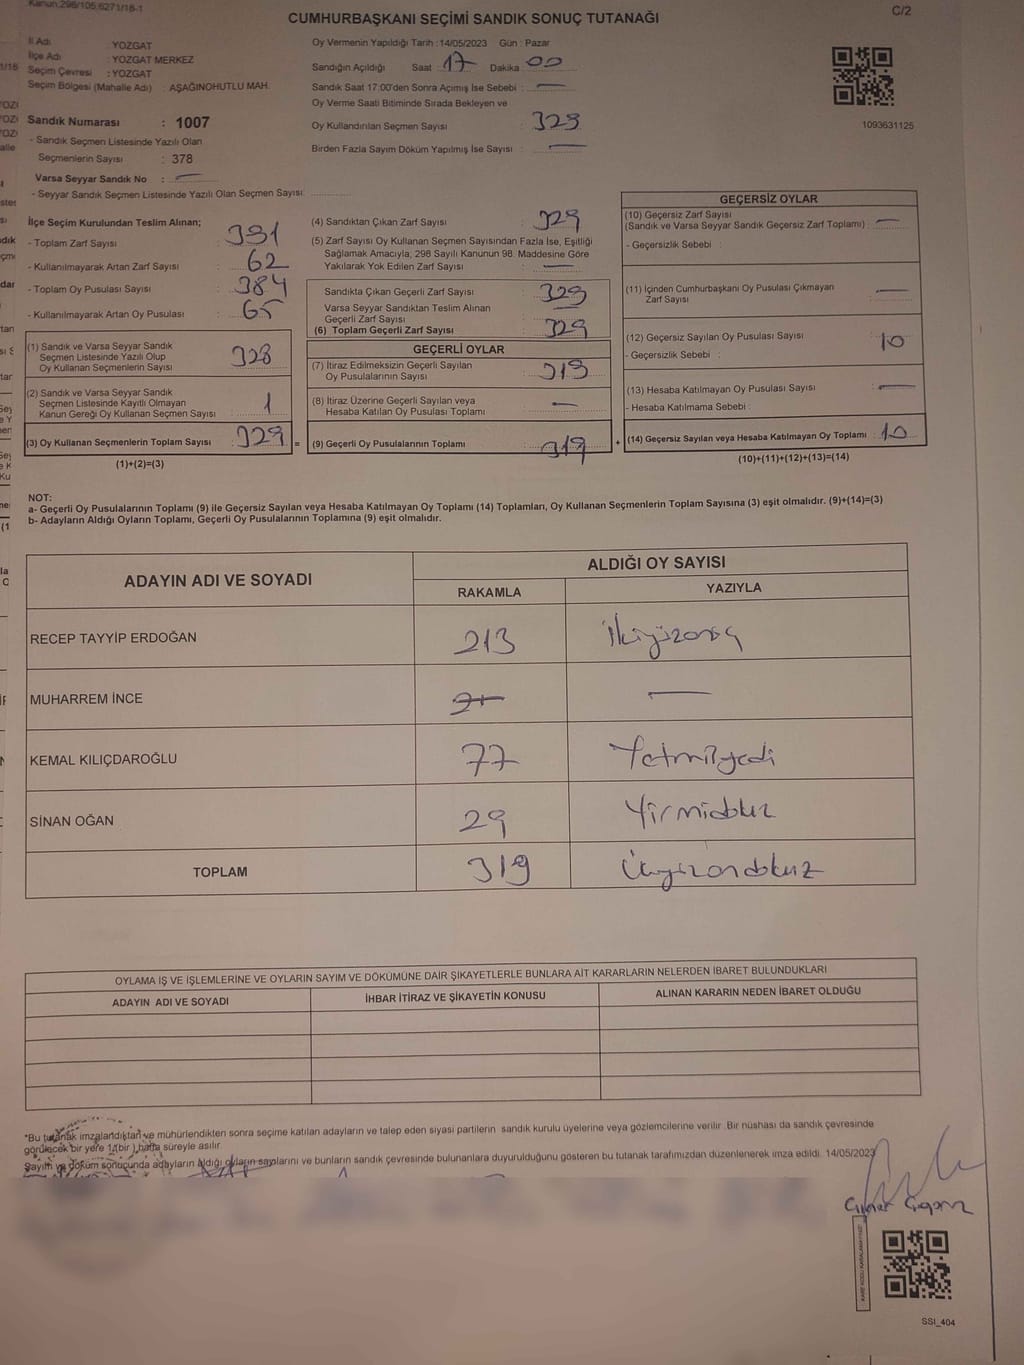 Kanun,298/105,6271/18-1
CUMHURBAŞKANI SEÇİMİ SANDIK SONUÇ TUTANAĞI
C/2
İl Adı : YOZGAT
İlçe Adı : YOZGAT MERKEZ
Seçim Çevresi : YOZGAT
Seçim Bölgesi (Mahalle Adı) : AŞAĞINOHUTLU MAH.
Sandık Numarası : 1007
- Sandık Seçmen Listesinde Yazılı Olan
Seçmenlerin Sayısı : 378
Varsa Seyyar Sandık No : —
- Seyyar Sandık Seçmen Listesinde Yazılı Olan Seçmen Sayısı:
Oy Vermenin Yapıldığı Tarih : 14/05/2023 Gün : Pazar
Sandığın Açıldığı Saat : 17 Dakika : 00
Sandık Saat 17:00'den Sonra Açımış İse Sebebi : —
Oy Verme Saati Bitiminde Sırada Bekleyen ve
Oy Kullandırılan Seçmen Sayısı : 329
Birden Fazla Sayım Döküm Yapılmış İse Sayısı : —
1093631125
İlçe Seçim Kurulundan Teslim Alınan;
- Toplam Zarf Sayısı : 391
- Kullanılmayarak Artan Zarf Sayısı : 62
- Toplam Oy Pusulası Sayısı : 384
- Kullanılmayarak Artan Oy Pusulası : 65
(1) Sandık ve Varsa Seyyar Sandık
Seçmen Listesinde Yazılı Olup
Oy Kullanan Seçmenlerin Sayısı : 328
(2) Sandık ve Varsa Seyyar Sandık
Seçmen Listesinde Kayıtlı Olmayan
Kanun Gereği Oy Kullanan Seçmen Sayısı : 1
(3) Oy Kullanan Seçmenlerin Toplam Sayısı : 329 =
(1)+(2)=(3)
(4) Sandıktan Çıkan Zarf Sayısı : 329
(5) Zarf Sayısı Oy Kullanan Seçmen Sayısından Fazla İse, Eşitliği
Sağlamak Amacıyla; 298 Sayılı Kanunun 98. Maddesine Göre
Yakılarak Yok Edilen Zarf Sayısı : —
Sandıkta Çıkan Geçerli Zarf Sayısı : 329
Varsa Seyyar Sandıktan Teslim Alınan
Geçerli Zarf Sayısı : —
(6) Toplam Geçerli Zarf Sayısı : 329
GEÇERLİ OYLAR
(7) İtiraz Edilmeksizin Geçerli Sayılan
Oy Pusulalarının Sayısı : 319
(8) İtiraz Üzerine Geçerli Sayılan veya
Hesaba Katılan Oy Pusulası Toplamı : —
(9) Geçerli Oy Pusulalarının Toplamı : 319 +
GEÇERSİZ OYLAR
(10) Geçersiz Zarf Sayısı
(Sandık ve Varsa Seyyar Sandık Geçersiz Zarf Toplamı) : —
- Geçersizlik Sebebi :
(11) İçinden Cumhurbaşkanı Oy Pusulası Çıkmayan
Zarf Sayısı : —
(12) Geçersiz Sayılan Oy Pusulası Sayısı : 10
- Geçersizlik Sebebi :
(13) Hesaba Katılmayan Oy Pusulası Sayısı : —
- Hesaba Katılmama Sebebi :
(14) Geçersiz Sayılan veya Hesaba Katılmayan Oy Toplamı : 10
(10)+(11)+(12)+(13)=(14)
NOT:
a- Geçerli Oy Pusulalarının Toplamı (9) ile Geçersiz Sayılan veya Hesaba Katılmayan Oy Toplamı (14) Toplamları, Oy Kullanan Seçmenlerin Toplam Sayısına (3) eşit olmalıdır. (9)+(14)=(3)
b- Adayların Aldığı Oyların Toplamı, Geçerli Oy Pusulalarının Toplamına (9) eşit olmalıdır.
ADAYIN ADI VE SOYADI
ALDIĞI OY SAYISI
RAKAMLA YAZIYLA
RECEP TAYYİP ERDOĞAN 213 İkiyüzonüç
MUHARREM İNCE —
KEMAL KILIÇDAROĞLU 77 Yetmişyedi
SİNAN OĞAN 29 Yirmidokuz
TOPLAM 319 Üçyüzondokuz
OYLAMA İŞ VE İŞLEMLERİNE VE OYLARIN SAYIM VE DÖKÜMÜNE DAİR ŞİKAYETLERLE BUNLARA AİT KARARLARIN NELERDEN İBARET BULUNDUKLARI
ADAYIN ADI VE SOYADI İHBAR İTİRAZ VE ŞİKAYETİN KONUSU ALINAN KARARIN NEDEN İBARET OLDUĞU
*Bu tutanak imzalandıktan ve mühürlendikten sonra seçime katılan adayların ve talep eden siyasi partilerin sandık kurulu üyelerine veya gözlemcilerine verilir. Bir nüshası da sandık çevresinde
görülecek bir yere 1 (bir) hafta süreyle asılır.
Sayım ve döküm sonucunda adayların aldığı oyların sayılarını ve bunların sandık çevresinde bulunanlara duyurulduğunu gösteren bu tutanak tarafımızdan düzenlenerek imza edildi. 14/05/2023
SSI_404